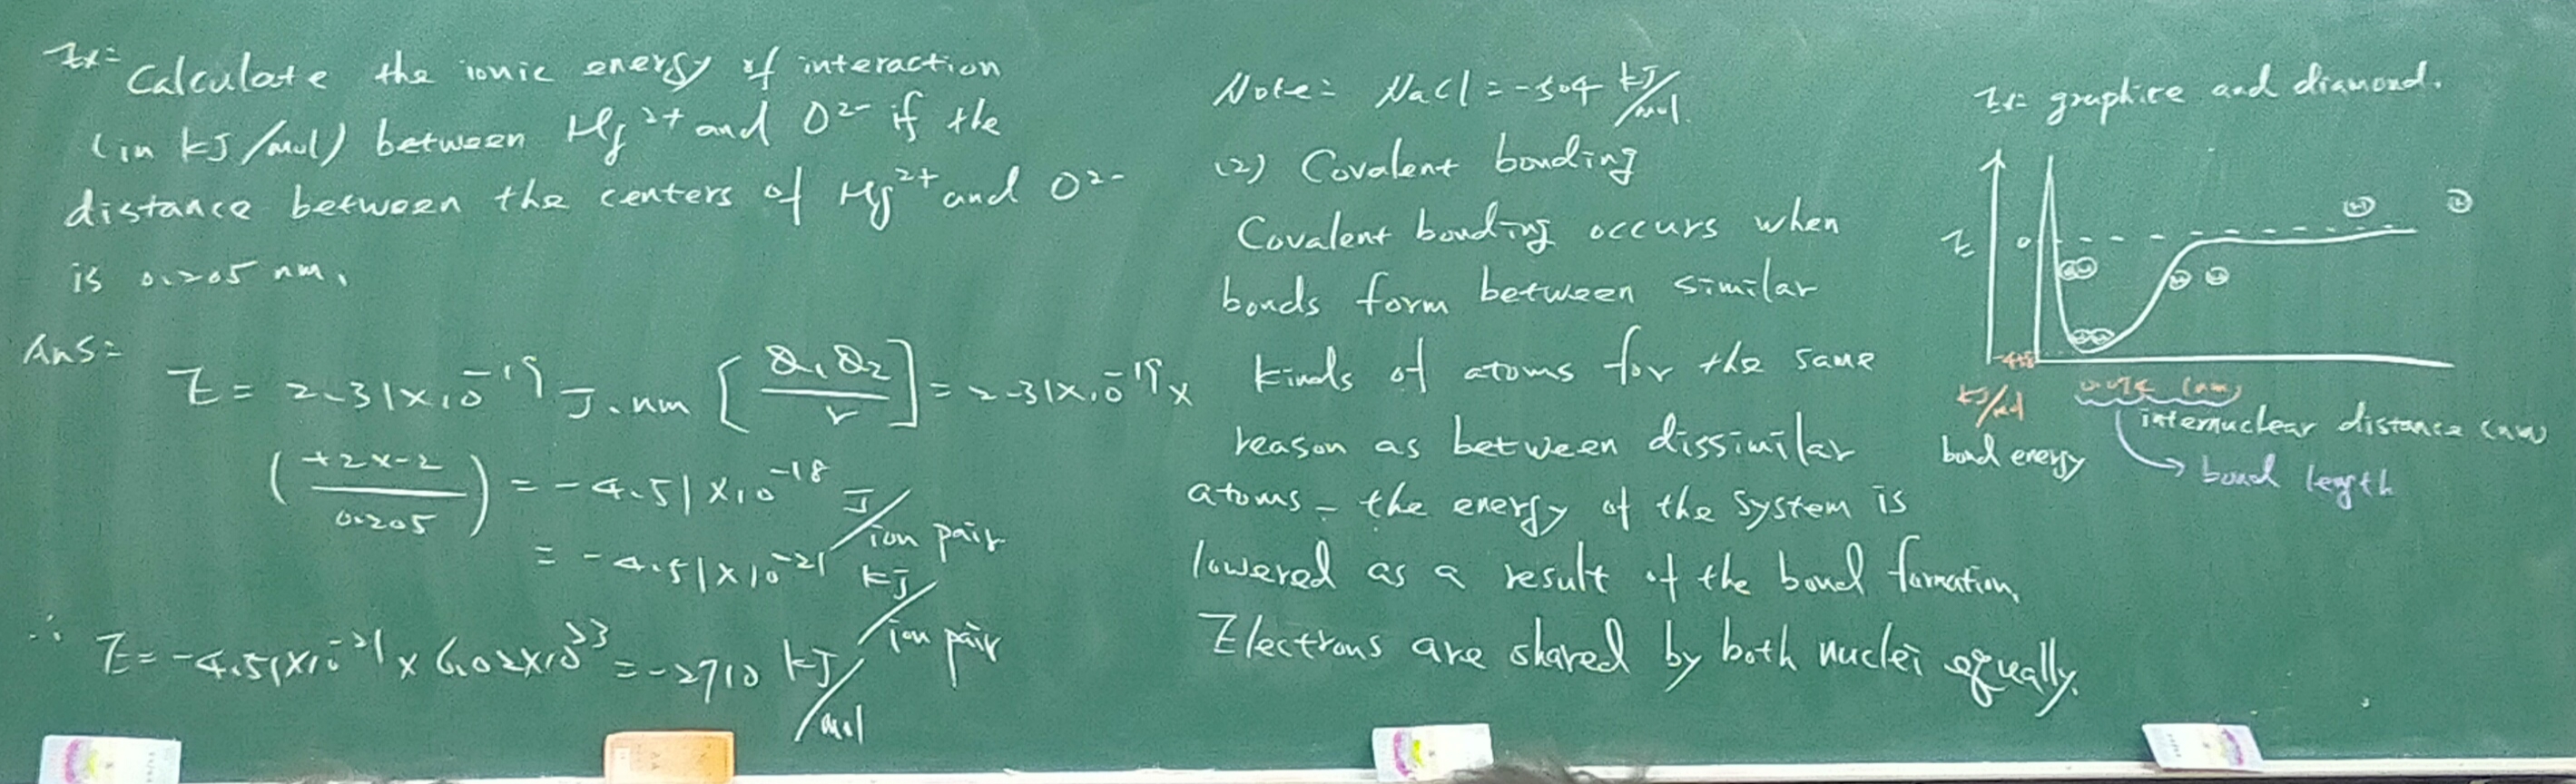 Ex: Calculate the ionic energy of interaction
(in kJ/mol) between Hg²⁺ and O²⁻ if the
distance between the centers of Hg²⁺ and O²⁻
is 0.205 nm.
Ans:
E = 2.31×10⁻¹⁹ J·nm [Q₁Q₂/r] = 2.31×10⁻¹⁹ ×
(+2×-2/0.205) = -4.51×10⁻¹⁸ J/ion pair
= -4.51×10⁻²¹ kJ/ion pair
∴ E = -4.51×10⁻²¹ × 6.02×10²³ = -2710 kJ/mol
Note: NaCl = -504 kJ/mol.
(2) Covalent bonding
Covalent bonding occurs when
bonds form between similar
kinds of atoms for the same
reason as between dissimilar
atoms - the energy of the system is
lowered as a result of the bond formation.
Electrons are shared by both nuclei equally.
Ex: graphite and diamond.
E
0
H H
H H
H H
H H
kJ/mol
(nm)
internuclear distance (nm)
bond energy
bond length